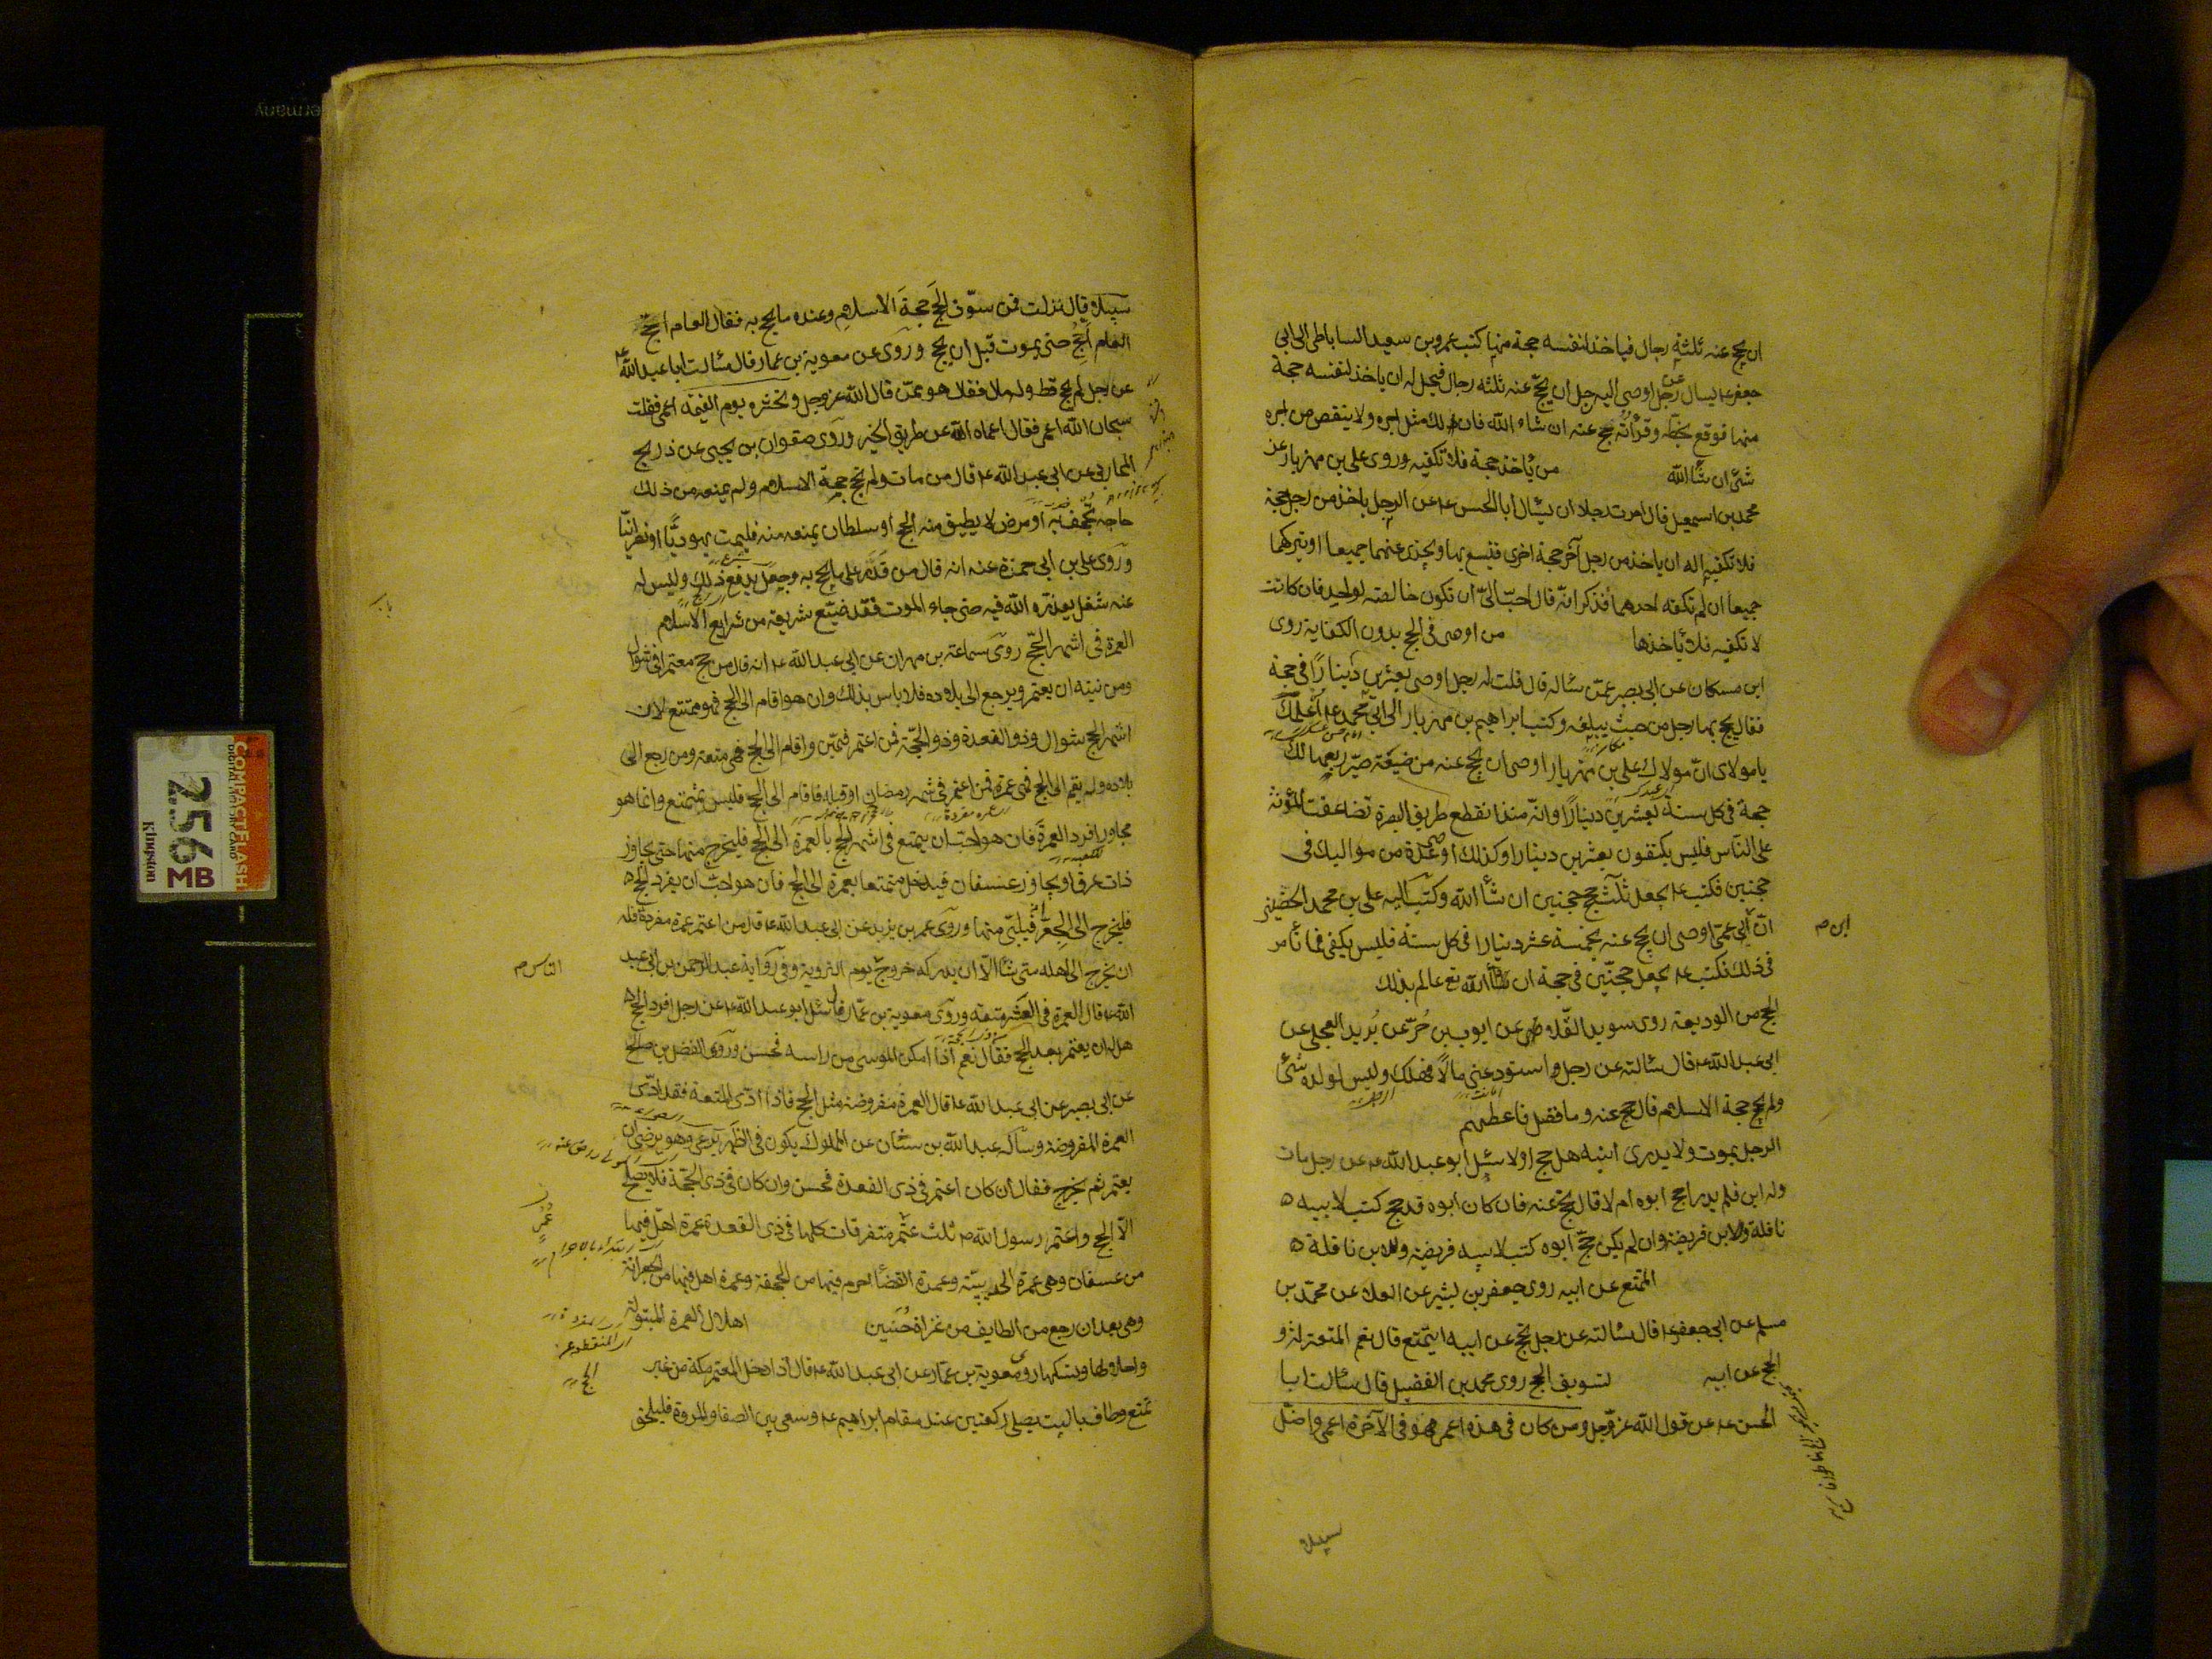 ان يحج عنه ثلثة رجال فياخذ لنفسه حجة منها كتب عمرو بن سعيد الساباطى الى ابى
جعفر ع يساله عن رجل اوصى اليه رجل ان يحج عنه ثلثة رجال فيحل له ان ياخذ لنفسه حجة
منها فوقع بخطه وقرأته حج عنه ان شاء الله فان لك مثل اجره ولا ينقص من اجره
شئ ان شأ الله من يأخذ حجة فلا تكفيه وروى على بن مهزيار عن
محمد بن اسمعيل قال امرت رجلا ان يسأل ابا الحسن ع عن الرجل ياخذ من رجل حجة
فلا تكفيه اله ان ياخذ من رجل آخر حجة اخرى فيتسع بها ويجزى عنهما جميعا او يتركهما
جميعا ان لم تكفه احدهما فذكر انه قال احب الىّ ان تكون خالصة لواحد فان كانت
لا تكفيه فلا يأخذها من اوصى فى الحج بدون الكفاية روى
ابن مسكان عن ابى بصير عمن سأله قال قلت له رجل اوصى بعشرين دينارا فى حجة
فقال يحج بها رجل من حيث يبلغه وكتب ابراهيم بن مهزيار الى ابى محمد ع اعلمك
يا مولاى ان مولاك على بن مهزيار اوصى ان يحج عنه من ضيعة صيّر ربعها لك
حجة فى كل سنة بعشرين دينارا وانه منذ انقطع طريق البصرة تضاعفت المؤنة
على الناس فليس يكتفون بعشرين دينارا وكذلك اوصى عدة من مواليك فى
حجتين فكتب ع يجعل ثلث حجج حجتين ان شأ الله وكتب اليه على بن محمد الحضينى
ان ابن عمى اوصى ان يحج عنه بخمسة عشر دينارا فى كل سنة فليس يكفى فما تأمر
ابن ص
فى ذلك فكتب ع يجعل حجتين فى حجة ان شأ الله تع عالم بذلك
الحج من الوديعة روى سويد القلا عن ايوب بن حُرّ عن بُريد العجلى عن
ابى عبد الله ع قال سألته عن رجل استودعنى مالا فهلك وليس لولده شئ
ولم يحج حجة الاسلام قال حج عنه وما فضل فاعطهم
الرجل يموت ولا يدرى ابنه هل حج او لا سئل ابو عبد الله ع عن رجل مات
وله ابن فلم يدر احج ابوه ام لا قال يحج عنه فان كان ابوه قد حج كتب لابيه
نافلة وللابن فريضة وان لم يكن حج ابوه كتب لابيه فريضة وللابن نافلة
المتمتع عن ابيه روى جعفر بن بشير عن العلا عن محمد بن
مسلم عن ابى جعفر ع قال سألته عن رجل يحج عن ابيه ايتمتع قال نعم المتعة له و
الحج عن ابيه تسويف الحج روى محمد بن الفضيل قال سألت ابا
الحسن ع عن قول الله عز وجل ومن كان فى هذه اعمى فهو فى الآخرة اعمى واضل
سبيلا
سبيلا قال نزلت فمن سوّف الحج حجة الاسلام وعنده ما يحج به فقال العام احج
العام احج حتى يموت قبل ان يحج وروى عن معوية بن عمار قال سألت ابا عبد الله ع
عن رجل لم يحج قط وله مال فقال هو ممن قال الله عز وجل ونحشره يوم القيمة اعمى فقلت
سبحان الله اعمى فقال اعماه الله عن طريق الخير وروى صفوان بن يحيى عن ذريح
المحاربى عن ابى عبد الله ع قال من مات ولم يحج حجة الاسلام ولم يمنعه من ذلك
حاجة تجحف به او مرض لا يطيق منه الحج او سلطان يمنعه منه فليمت يهوديّا او نصرانيّا
وروى على بن ابى حمزة عنه انه قال من قدر على ما يحج به وجعل يدفع ذلك وليس له
عنه شغل يعذره الله فيه حتى جاء الموت فقد ضيّع شريعة من شرايع الاسلام
العمرة فى اشهر الحج روى سماعة بن مهران عن ابى عبد الله ع انه قال من حج معتمرا فى شوال
ومن نيته ان يعتمر ويرجع الى بلاده فلا باس بذلك وان هو اقام الى الحج فهو متمتع لان
اشهر الحج شوال وذو القعدة وذو الحجة فمن اعتمر فيهن واقام الى الحج فهى متعة ومن رجع الى
بلاده ولم يقم الى الحج فهى عمرة فمن اعتمر فى شهر رمضان او قبله فاقام الى الحج فليس بمتمتع وانما هو
مجاور افرد العمرة فان هو احب ان يتمتع فى اشهر الحج بالعمرة الى الحج فليخرج منها حتى يجاوز
ذات عرق او يجاوز عسفان فيدخل متمتعا بعمرة الى الحج فان هو احب ان يفرد الحج
فليخرج الى الجعرانة فيلبى منها وروى عمر بن يزيد عن ابى عبد الله ع قال من اعتمر عمرة مفردة فله
ان يخرج الى اهله متى شأ الا ان يدركه خروج يوم التروية وفى رواية عبد الرحمن بن ابى عبد
الناس ص
الله ع قال العمرة فى العشر متعة وروى معوية بن عمار قال سئل ابو عبد الله ع عن رجل افرد الحج
هل له ان يعتمر بعد الحج فقال نعم اذا امكن الموسى من راسه فحسن وروى المفضل بن صالح
عن ابى بصير عن ابى عبد الله ع قال العمرة مفروضة مثل الحج فاذا ادّى المتعة فقد ادّى
العمرة المفروضة وسأله عبد الله بن سنان عن المملوك يكون فى الظهر يرعى وهو يرضى ان
يعتمر ثم يخرج فقال ان كان اعتمر فى ذى القعدة فحسن وان كان فى ذى الحجة فلا يصلح
الّا الحج واعتمر رسول الله ص ثلث عُمَر متفرقات كلها فى ذى القعدة عمرة اهلّ فيها
عُمَر
من عسفان وهى عمرة الحديبيّة وعمرة القضأ احرم فيها من الجحفة وعمرة اهل فيها من الجعرانة
وهى بعد ان رجع من الطايف من غزاة حُنَين اهلال العمرة المبتولة
واحلالها ونسكها روى معوية بن عمار عن ابى عبد الله ع قال اذا دخل المعتمر مكة من غير
تمتع وطاف بالبيت يصلى ركعتين عند مقام ابراهيم ع وسعى بين الصفا والمروة فليلحق
COMPACTFLASH
256 MB
Kingston